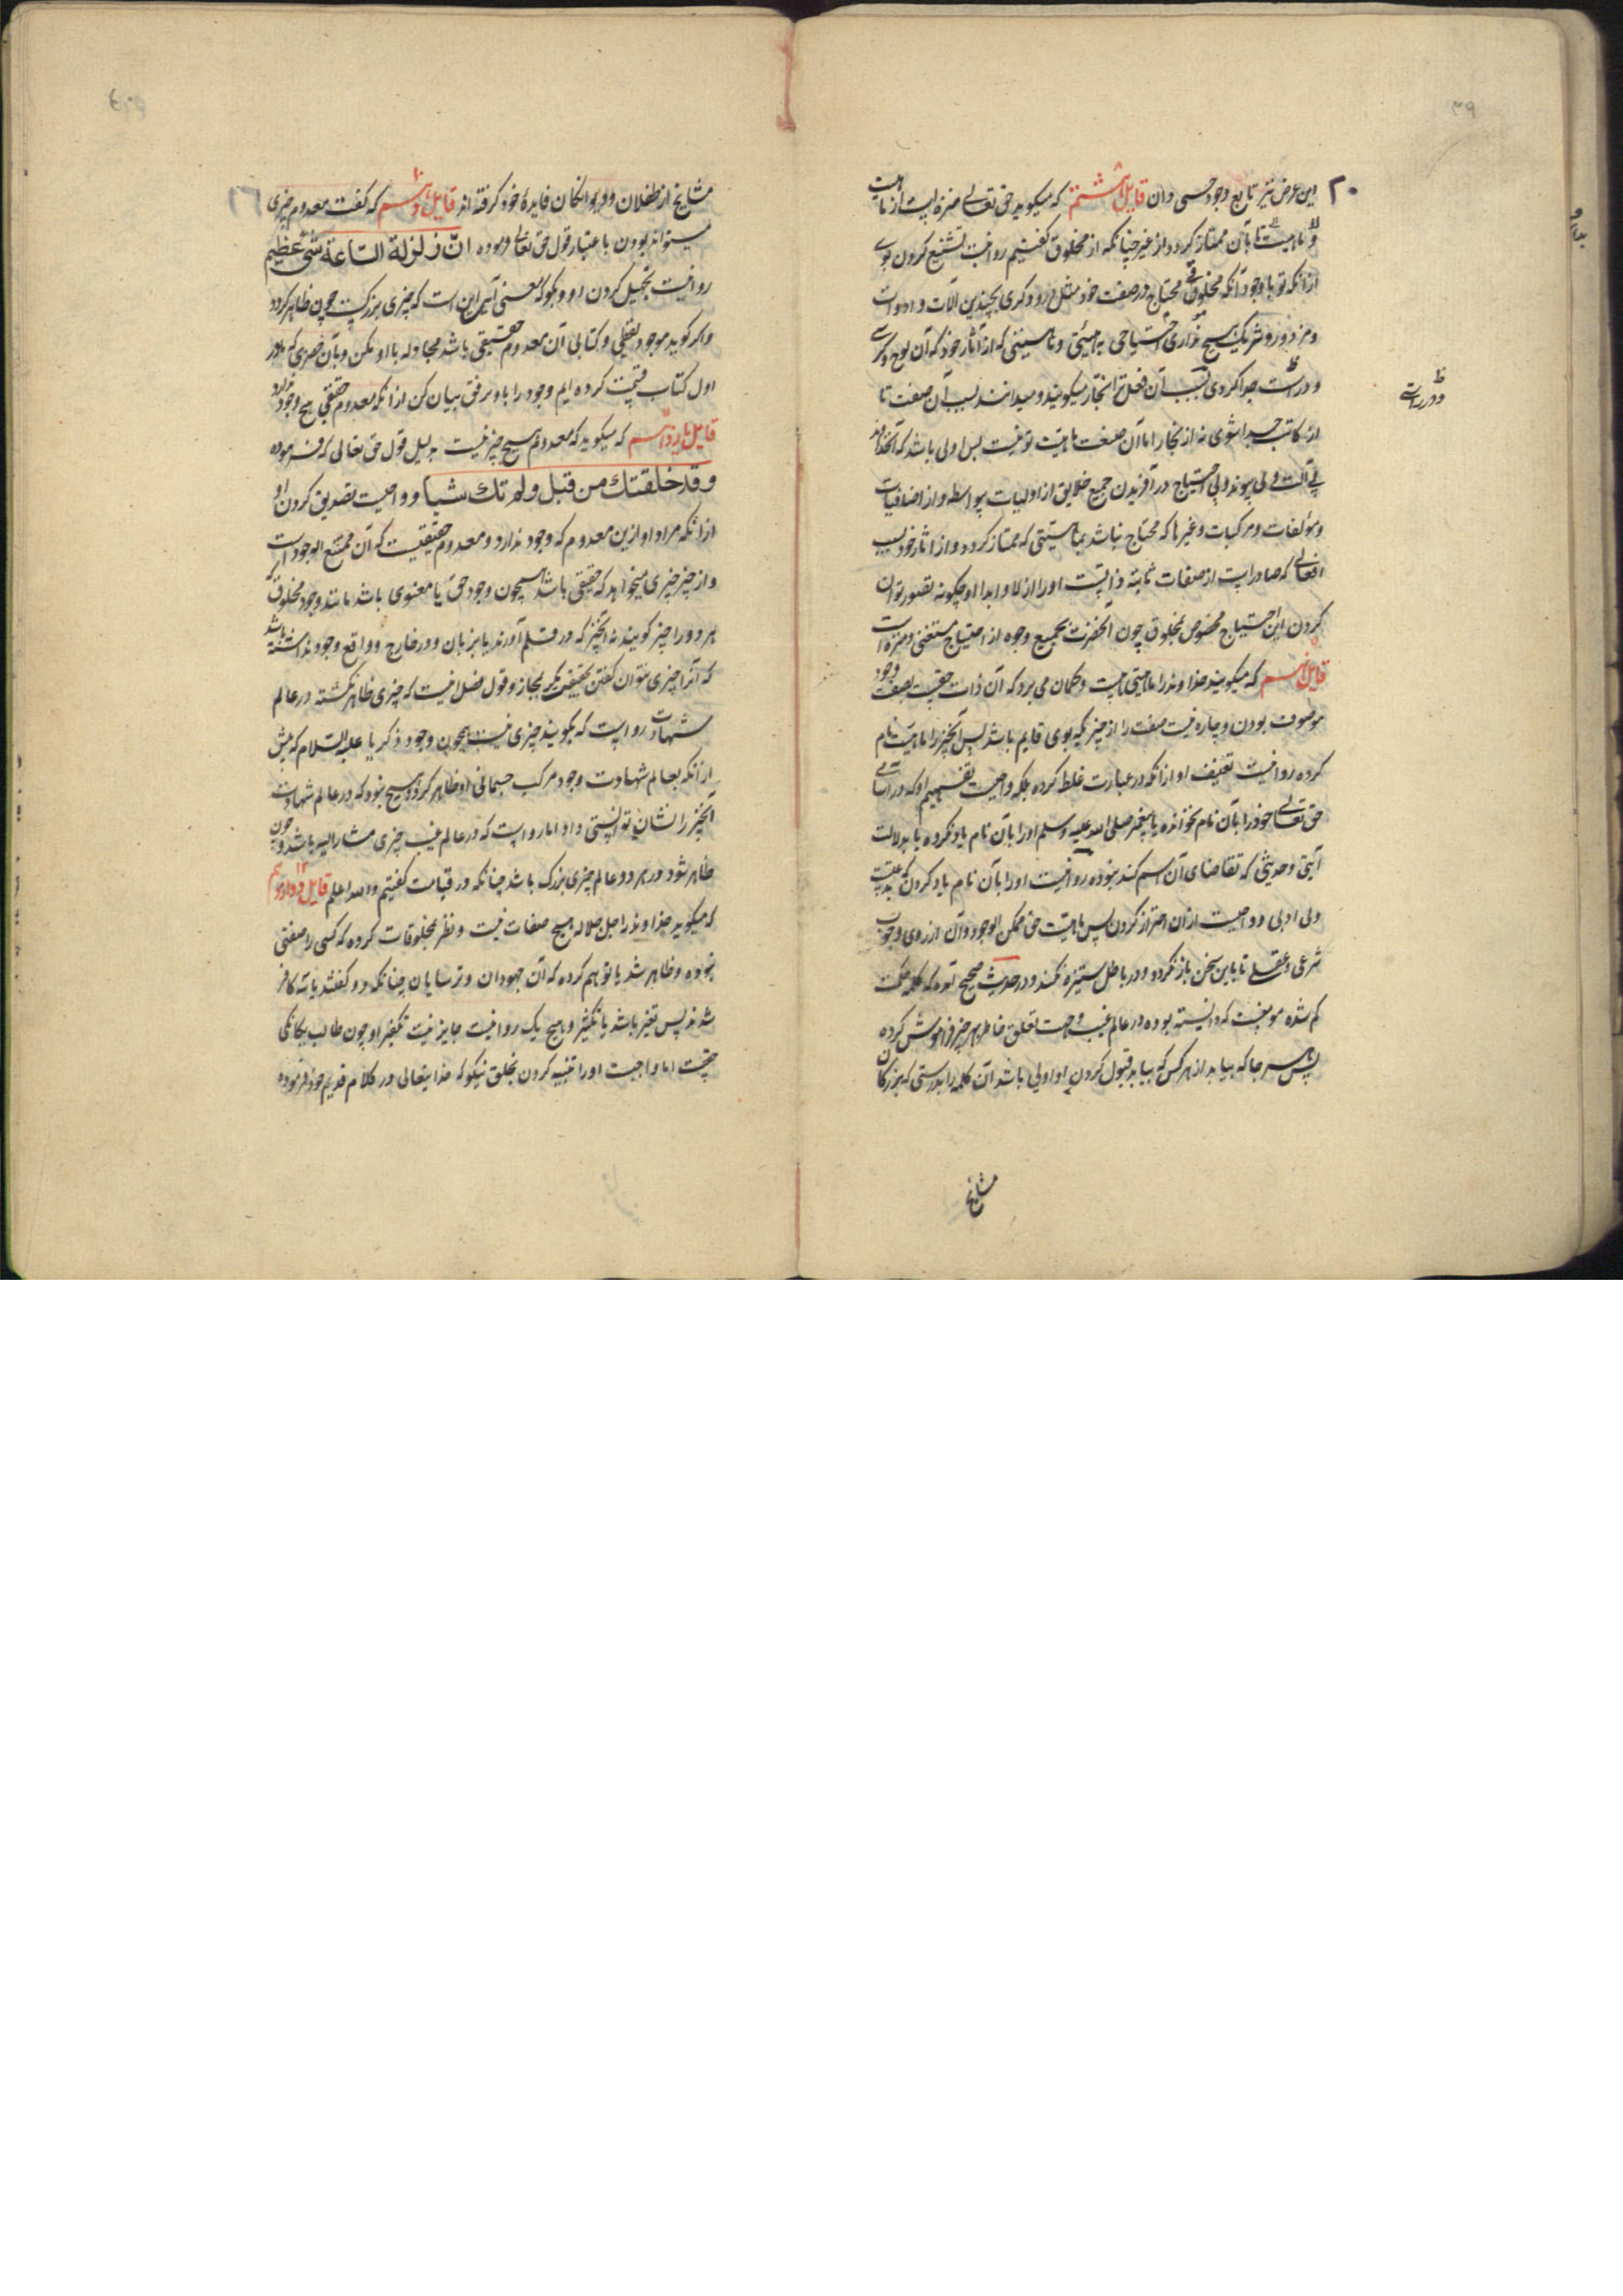 این عرض نیز تابع وجود حسی دان قایل هشتم که میگوید حق تعالی منزه است از ماهیت
و ماهیت تا بآن ممتاز گردد از غیر چنانکه از مخلوق گفتیم روا نیست تشنیع کردن بوی
ازانکه تو با وجود آنکه مخلوقی محتاج در صفت خود مثل درودگری بچندین آلات و ادوات
و مزدور و شریک هیچ نداری احتیاجی به ماهیتی که از آثار خود که آن لوح و کرسی
و در است جدا گردی بسبب آن فعل ترا نجار میگویند و میدانند بسبب آن صفت تا
از کاتب جدا شوی نه از نجار اما آن صفت ماهیت تو نیست پس اولی باشد که آن خداوند
بی آلت و بی پیوند و بی احتیاج در آفریدن جمیع خلایق از اولیات بواسطه و از اضافیات
و مؤلفات و مرکبات و غیرها که محتاج نباشد بماهیتی که ممتاز گردد و از آثار خود بسبب
افعالی که صادر است از صفات ثابته ذاتیست او را ازلا و ابدا او چگونه تصور توان
کردن این احتیاج مخصوص بمخلوق چون آنحضرت بجمیع وجوه از احتیاج مستغنی و منزه است
قایل نهم که میگویند خداوند را ماهیتی هست و گمان می برد که آن ذات حقیست بصفت وجود
موصوف بودن و چاره نیست صفت را از چیزیکه بوی قایم باشد پس آنچیز را ماهیت نام
کرده روا نیست تعنیف او ازانکه در عبارت غلط کرده بلکه واجبست تفهیم او که در اسامی
حق تعالی خود را بآن نام نخوانده یا پیغمبر صلی الله علیه وسلم او را بآن نام یاد نکرده یا بدلالت
آیتی و حدیثی که تقاضای آن اسم کند نبوده روا نیست او را بآن نام یاد کردن که بدعتیست
و بی ادبی و واجبست ازان احتراز کردن پس ماهیت حق ممکن الوجود و آن از روی وجوب
شرعی و عقلی تا باین سخن باز نگردد و در باطل ستیزه نکند و در حدیث صحیح آمده که کلمه حکمت
گم شده مومنست که دانسته بوده در عالم غیب و جهت تعلق خاطر بهر چیز فراموش کرده
پس هر جا که بیابد از هر کس که بیابد قبول کردن او اولی باشد آن کلمه را بدرستی که بزرگان
مشایخ
مشایخ از طفلان و دیوانگان فایدهٔ خود گرفته اند قایل دهم که گفت معدوم چیزی
میتواند بودن باعتبار قول حق تعالی فرموده انّ زلزلة الساعة شیء عظیم
روا نیست تجهیل کردن او و بگو که معنی آیه این است که چیزی بزرگیست چون ظاهر گردد
و اگر گوید موجود لفظی و کتابی آن معدوم حقیقی باشد مجادله با او مکن و بآن حصری که ما در
اول کتاب قسمت کرده ایم وجود را با او برفق بیان کن ازانکه معدوم حقیقی هیچ وجود ندارد
قایل یازدهم که میگوید که معدوم هیچ چیز نیست بدلیل قول حق تعالی که فرموده
وقد خلقتك من قبل ولم تك شیئا و واجبست تصدیق کردن او
ازانکه مراد او ازین معدوم که وجود ندارد و معدوم حقیقیست که آن ممتنع الوجود است
و از چیز چیزی میخواهد که حقیقی باشد همچون وجود حق یا معنوی باشد مانند وجود مخلوق که
هر دو را چیز گویند نه آنچیز که در قلم آورند یا بزبان و در خارج و واقع وجود نداشته باشد
که آنرا چیزی نتوان گفتن بحقیقت مگر بمجاز و قول فضلا نیست که چیزی ظاهر نگشته در عالم
شهادت رواست که بگویند چیزی نیست همچون وجود ذکریا علیه السلام که پیش
ازانکه بعالم شهادت وجود مرکب جسمانی او ظاهر گردد هیچ نبود که در عالم شهادت
آنچیز را نشان توانستی داد اما رواست که در عالم غیب چیزی مشار الیه باشد و چون
ظاهر شود در هر دو عالم چیزی بزرگ باشد چنانکه در قیامت گفتیم والله اعلم قایل دوازدهم
که میگوید خداوند را جل جلاله هیچ صفات نیست و نظر بمخلوقات کرده که کسی را صفتی
نبوده و ظاهر شد یا توهم کرده که آن جهودان و ترسایان چنانکه دو گفتند یا سه کافر
شدند پس تغیر باشد یا تکثر و هیچ یک روا نیست جایز نیست تکفیر او چون طالب یگانگی
حقست اما واجبست او را تنبیه کردن بخلق نیکو که خدایتعالی در کلام قدیم خود فرموده